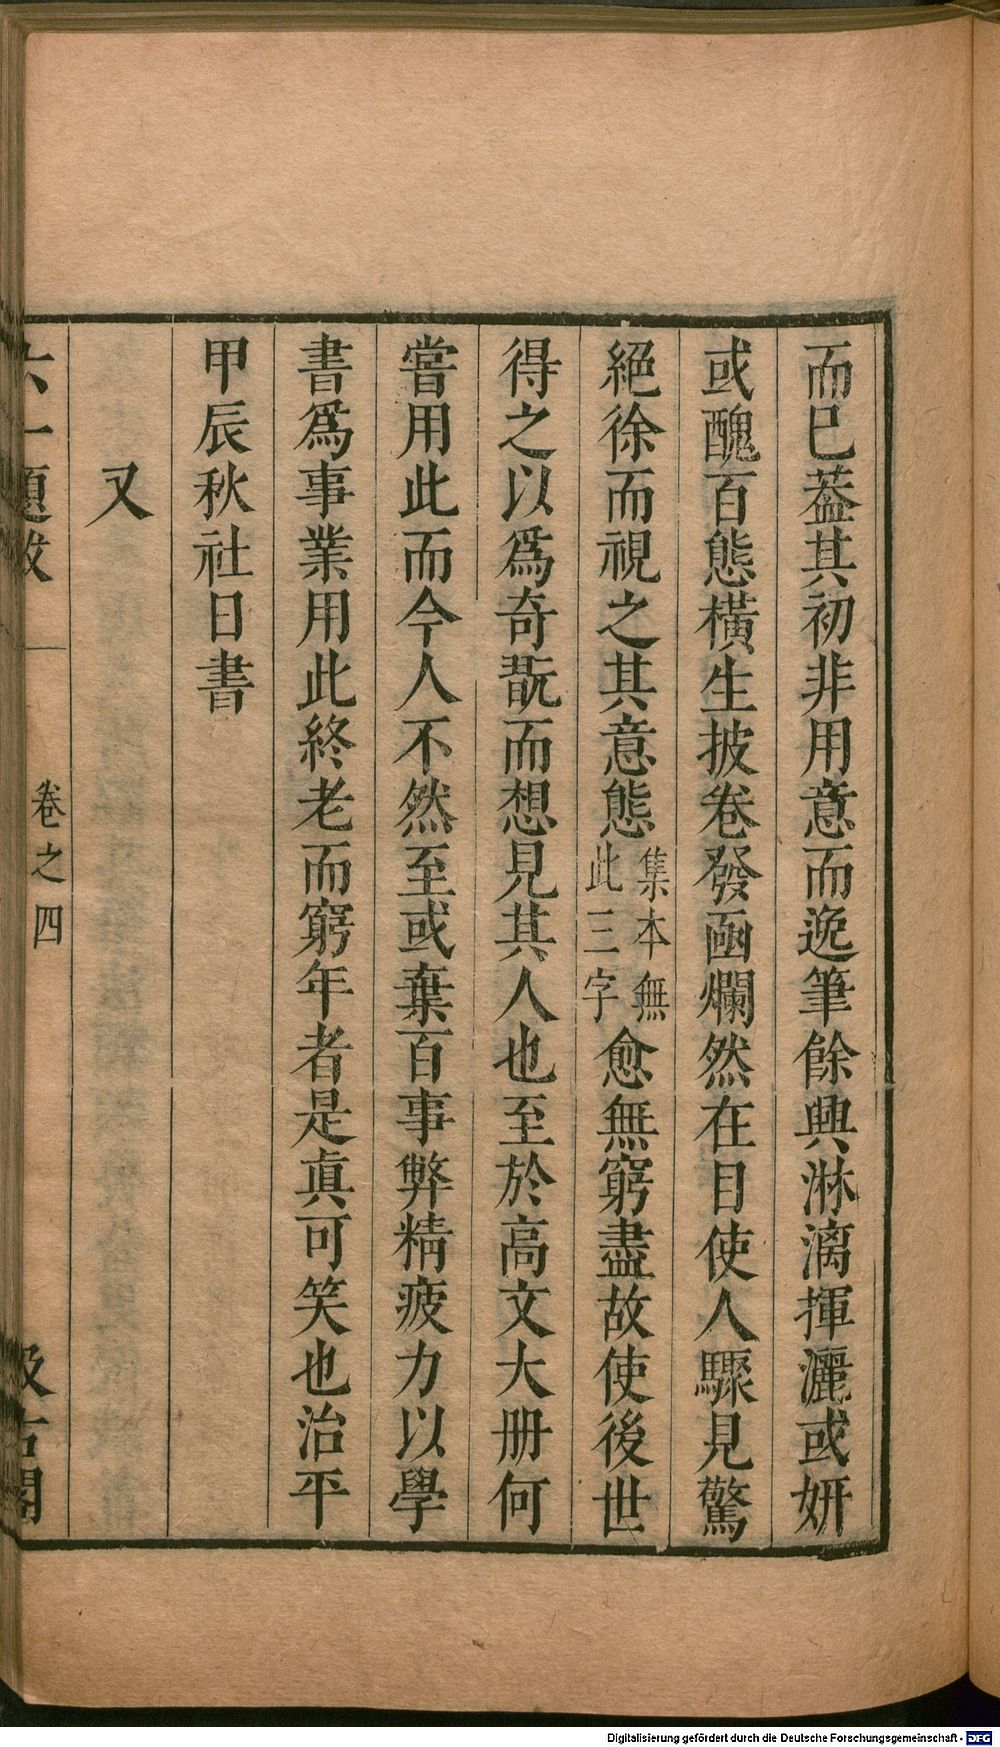 而已葢其初非用意而逸筆餘興淋漓揮灑或妍
或醜百態橫生披卷發函爛然在目使人驟見驚
絕徐而視之其意態集本無此三字愈無窮盡故使後世
得之以爲奇翫而想見其人也至於高文大册何
嘗用此而今人不然至或棄百事弊精疲力以學
書爲事業用此終老而窮年者是眞可笑也治平
甲辰秋社日書
又
六一題跋
卷之四
汲古閣
Digitalisierung gefördert durch die Deutsche Forschungsgemeinschaft - DFG